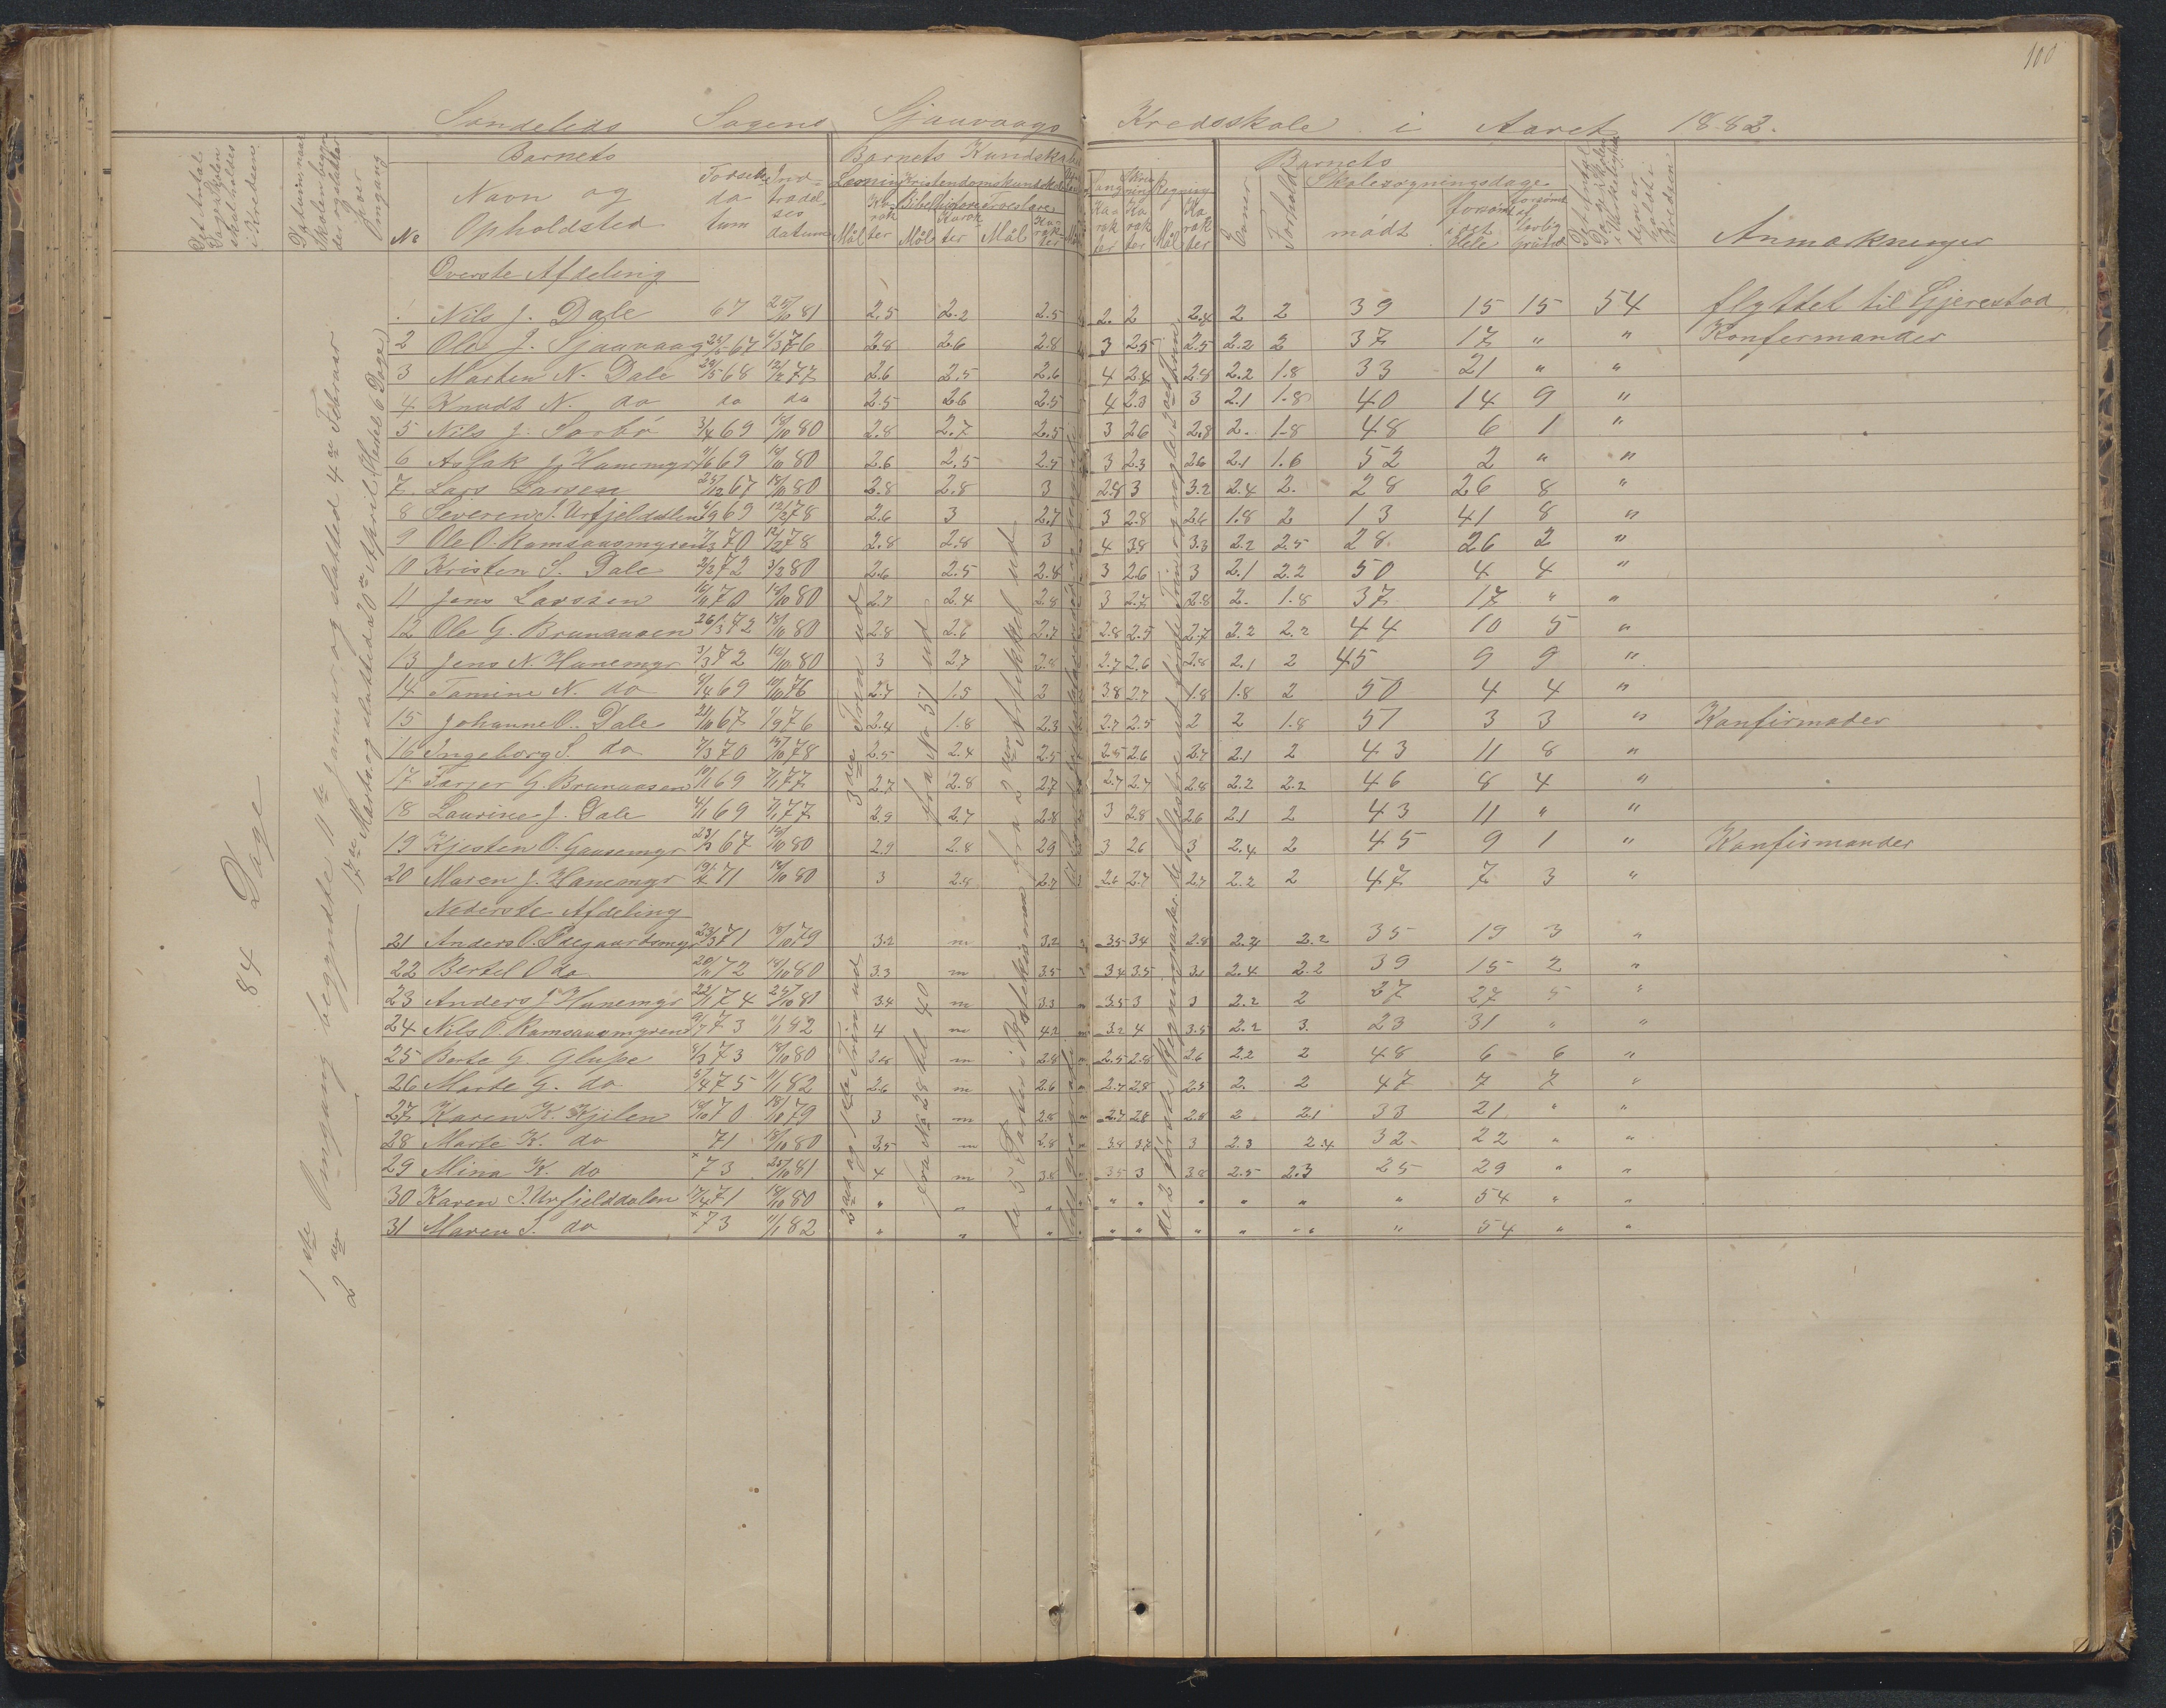 100
Søndeleds Sogens Sjaavaags Kredsskole i Aaret 1882.
Det Antal Dage Skolen skal holdes i Kredsen
Datum naar Skolen begynder og slutter hver Omgang
Barnets
No Navn og Opholdsted
Fødselsdatum
Indtrædelsesdatum
Barnets Kundskaber
Læsning Mål Karakter
Kristendomskundskab
Bibelhistorie Mål Karakter
Troeslære Mål Karakter
Sang Karakter
Skrivning Karakter
Regning Mål Karakter
Evner
Forhold
Barnets Skolesøgningsdage
mødt
forsømt i det Hele
forsømt af lovlig Grund
Det Antal Dage Skolen i Virkeligheden er holdt i Kredsen
Anmærkninger
84 Dage
1ste Omgang begyndte 11te Januar og sluttede 4de Februar
2den — 17de Marts og sluttede 20de April (Hedel 6 Dage)
Øverste Afdeling
1 Nils J. Dale 67 25/10 81 2.5 2.2 2.5 2. 2 2.8 2 2 39 15 15 54 flyttet til Gjerestad
2 Ole J. Sjaavaag 67 76 2.8 2.6 2.8 3 2.5 2.5 2.2 2 37 17 " " Konfermander
3 Marten N. Dale 29/5 68 12/2 77 2.6 2.5 2.6 4 2.4 2.8 2.2 1.8 33 21 " "
4 Knudt N. do do do 2.5 2.6 2.5 4 2.3 3 2.1 1.8 40 14 9 "
5 Nils J. Sørbø 3/4 69 18/10 80 2.8 2.7 2.5 3 2.6 2.8 2. 1.8 48 6 1 "
6 Aslak J. Hanemyr 69 18/10 80 2.6 2.5 2.5 3 2.3 2.6 2.1 1.6 52 2 " "
7 Lars Larsen 25/12 67 18/10 80 2.8 2.8 3 2.8 3 3.2 2.4 2. 28 26 8 "
8 Severen S. Urfjeldslen 69 12/2 78 2.6 3 2.7 3 2.8 2.6 1.8 2 13 41 8 "
9 Ole O. Ramsaasmyren 70 12/2 78 2.8 2.8 3 4 3.8 3.3 2.2 2.5 28 26 2 "
10 Kristen S. Dale 72 3/2 80 2.6 2.5 2.8 3 2.6 3 2.1 2.2 50 4 4 "
11 Jens Larssen 70 18/10 80 2.7 2.4 2.8 3 2.7 2.8 2. 1.8 37 17 " "
12 Ole G. Brunaasen 26/3 72 18/10 80 2.8 2.6 2.7 2.8 2.5 2.7 2.2 2.2 44 10 5 "
13 Jens N. Hanemyr 3/3 72 18/10 80 3 2.7 2.8 2.7 2.6 2.8 2.1 2 45 9 9 "
14 Tomine N. do 69 76 2.7 1.5 2 3.8 2.7 1.8 1.8 2 50 4 4 "
15 Johanne O. Dale 67 76 2.4 1.8 2.3 2.7 2.5 2 2 1.8 51 3 3 " Konfirmader
16 Ingeborg S. do 70 78 2.5 2.4 2.5 2.5 2.6 2.7 2.1 2 43 11 8 "
17 Tarjer G. Brunaasen 69 77 2.7 2.8 2.7 2.7 2.7 2.8 2.2 2.2 46 8 4 "
18 Laurine J. Dale 69 77 2.9 2.7 2.8 3 2.8 2.6 2.1 2 43 11 " "
19 Kjesten O. Gaasemyr 67 18/10 80 2.9 2.8 2.9 3 2.6 3 2.4 2 45 9 1 " Konfirmander
20 Maren J. Hanemyr 71 18/10 80 3 2.8 2.7 2.6 2.7 2.7 2.2 2 47 7 3 "
Nederste Afdeling
21 Anders O. Ødegaardsmyr 23/3 71 18/10 79 3.2 m 3.2 3.5 3.4 2.8 2.4 2.2 35 19 3 "
22 Bertel O do 20/11 72 18/10 80 3.3 m 3.5 3.4 3.5 3.1 2.4 2.2 39 15 2 "
23 Anders J. Hanemyr 74 25/10 81 3.4 m 3.3 3.5 3 3 2.2 2 27 27 5 "
24 Nils O. Ramsaasmyren 73 11/1 82 4 m 4.2 3.2 4 3.5 2.2 3. 23 31 " "
25 Berte G. Glupe 8/3 73 18/10 80 2.8 m 2.8 2.5 2.8 2.6 2.2 2 48 6 6 "
26 Marte G. do 75 11/1 82 2.6 m 2.6 2.7 2.8 2.5 2. 2 47 7 7 "
27 Karen K. Kjilen 70 18/10 79 3 m 2.8 2.7 2.8 2.8 2 2.1 33 21 " "
28 Marte K. do 71 18/10 80 3.5 m 2.8 3.8 3.2 3 2.3 2.4 32 22 " "
29 Mina K. do 73 25/10 81 4 m 3.8 3.5 3 3.8 2.5 2.3 25 29 " "
30 Karen S. Urfjelddalen 17/4 71 18/10 80 " " " " " " " " " 54 " "
31 Maren S. do 73 11/1 82 " " " " " " " " " 54 " "
3die Trin ud
2det og 1ste Trin ud
fra No 51 ud
fra No 28 til 40
fra 2den Artikkel ud
de 5 Parter i Katekismen